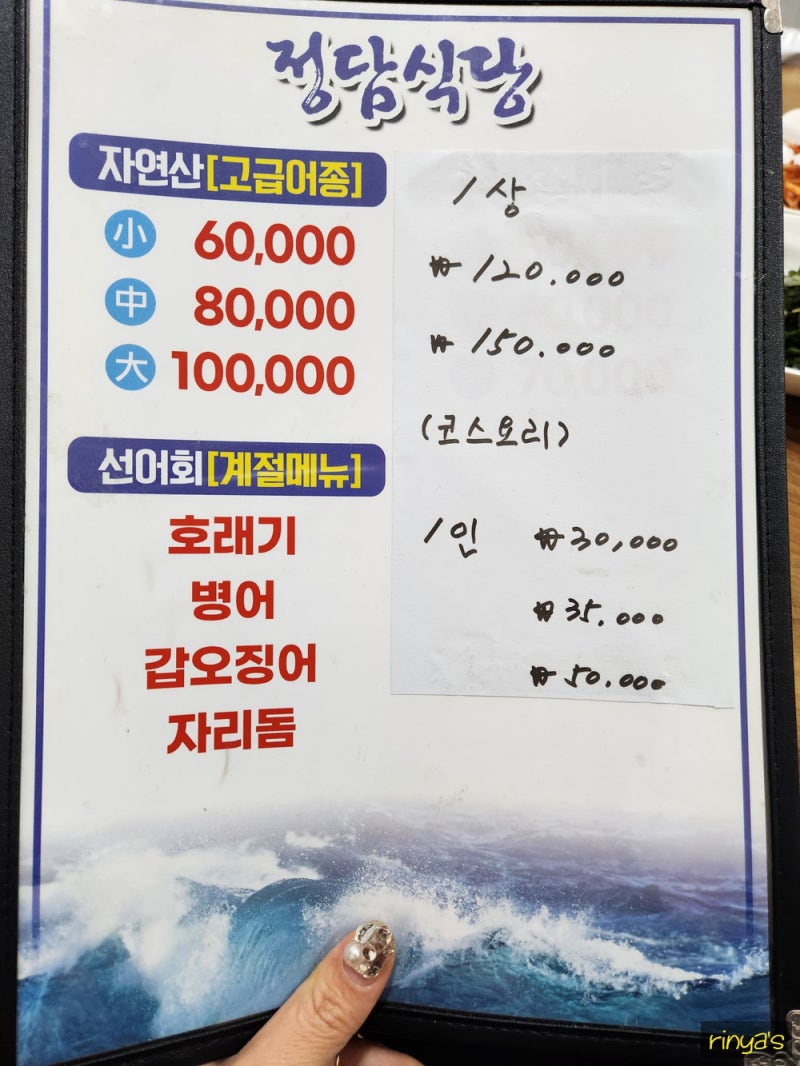 정담식당
자연산[고급어종]
小 60,000
中 80,000
大 100,000
선어회[계절메뉴]
호래기
병어
갑오징어
자리돔
1상
₩120.000
₩150.000
(코스요리)
1인 ₩30,000
₩35.000
₩50.000
70,000
rinya's